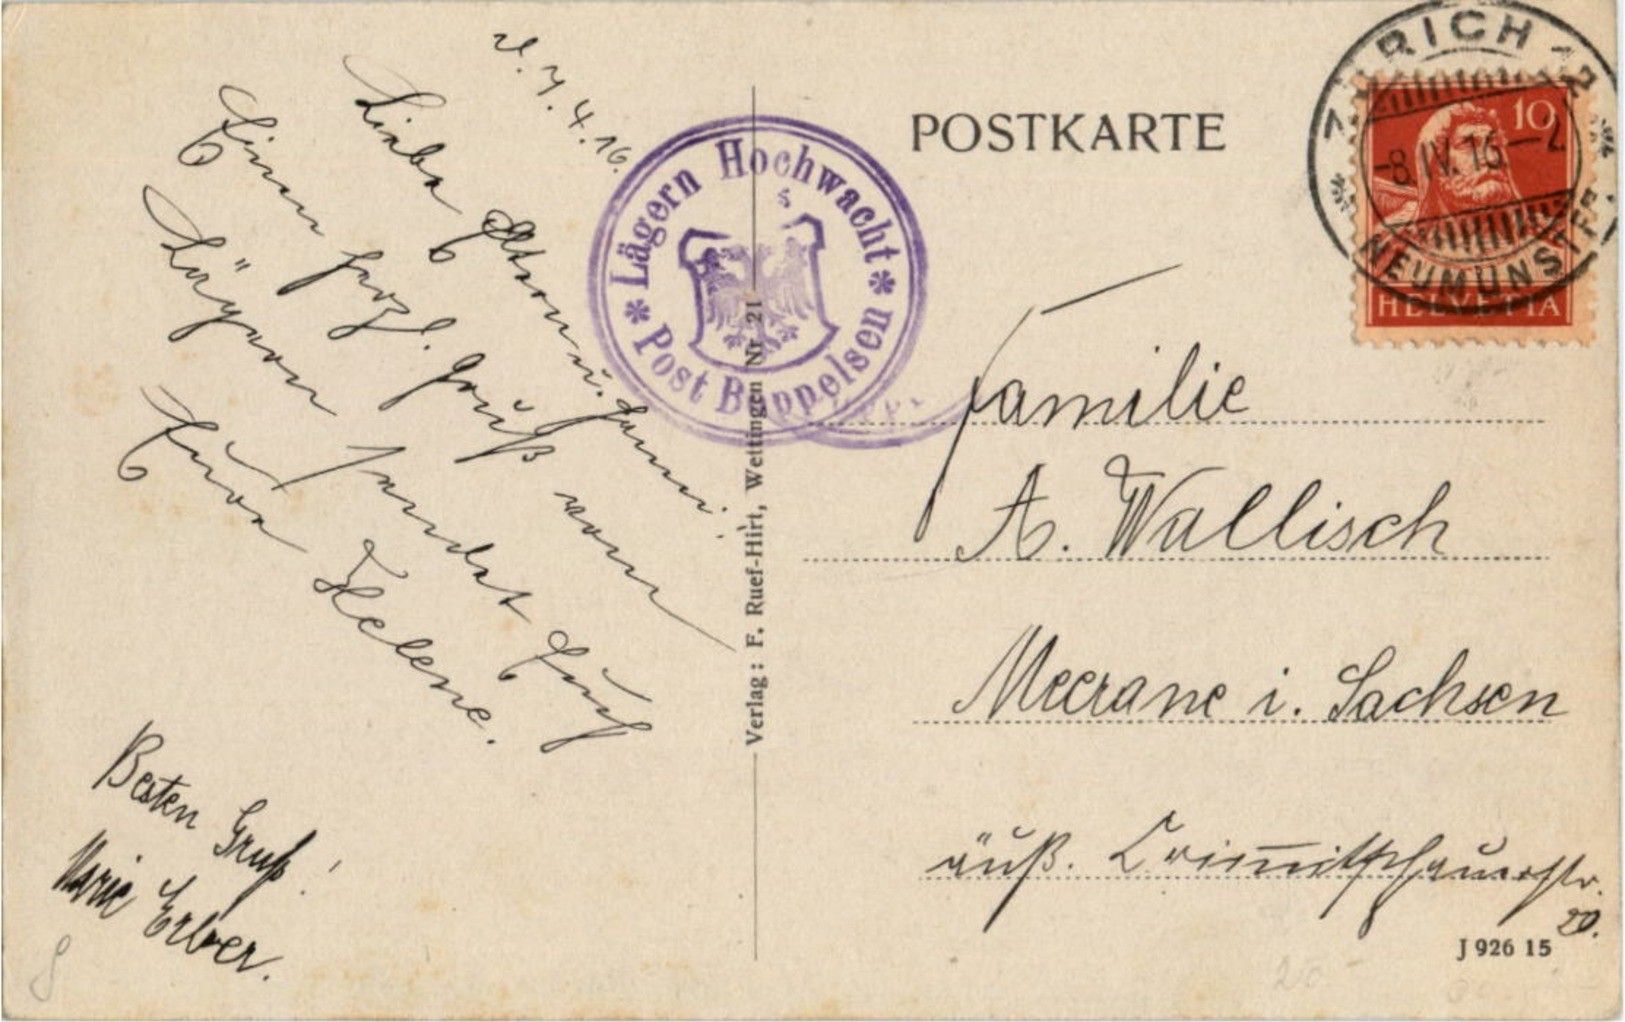 d. 7.4.16.
Liebe Eltern u. Hanni!
Einen herzl. Gruß vom
Lägern sendet Euch
Eure Helene.
Besten Gruß!
Marie Erber.
Lägern Hochwacht
Post Boppelsen
Verlag: F. Ruef-Hirt, Wettingen Nr. 21
POSTKARTE
ZÜRICH 12
-8.IV.16.-2
NEUMÜNSTER
10
HELVETIA
Familie
A. Wallisch
Meerane i. Sachsen
äuß. Crimmitschauerstr.
20.
J 926 15